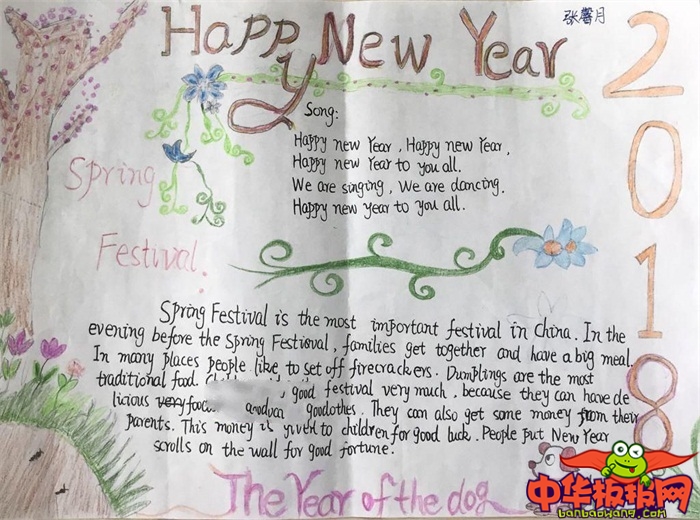 Happy New Year
张馨月
2018
Song:
Happy new Year, Happy new Year,
Happy new Year to you all.
We are singing, We are dancing.
Happy new year to you all.
Spring
Festival.
Spring Festival is the most important festival in China. In the
evening before the Spring Festioval, families get together and have a big meal.
In many places people like to set off firecrackers. Dumplings are the most
traditional food.
, good festival very much, because they can have de
licious very food goodothes. They can also get some money from their
parents. This money is given to children for good luck. People put New Year
scrolls on the wall for good fortune.
The Year of the dog
中华板报网
banbaowang.com